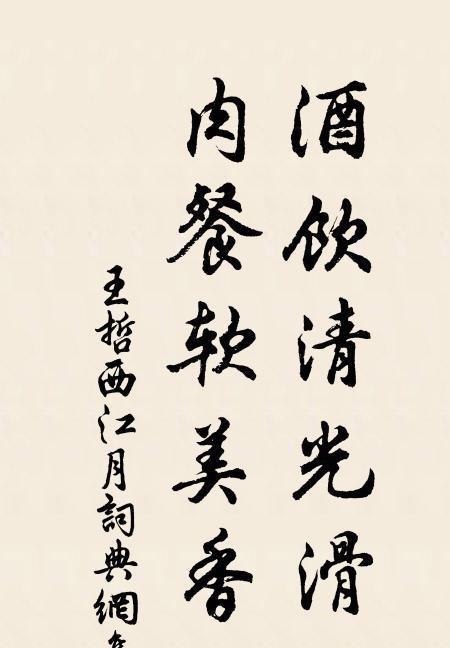 酒饮清光滑
肉餐软美香
王哲西江月詞典網